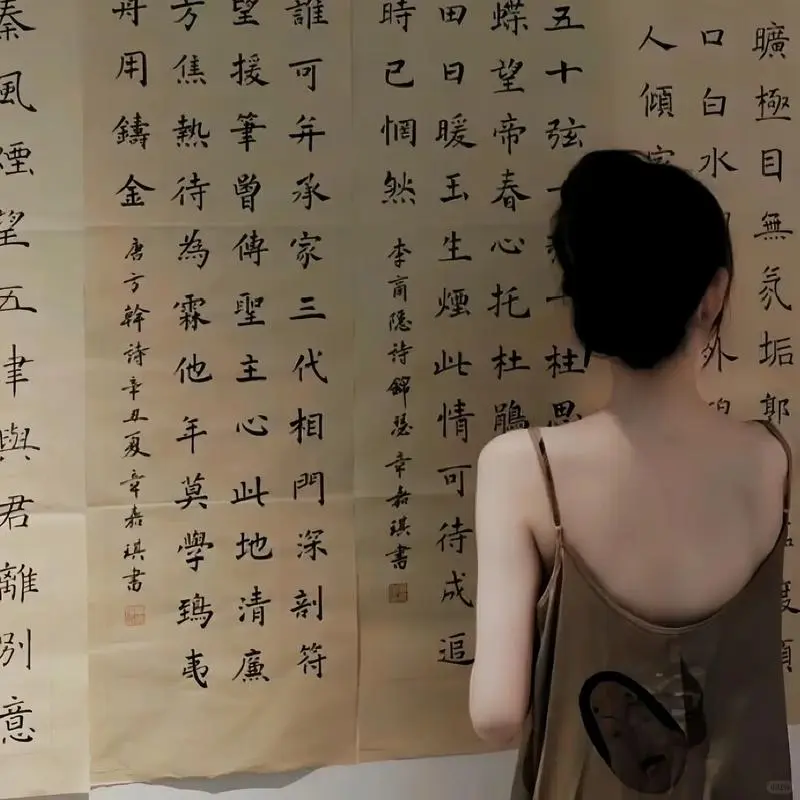 曠極目無氛垢郭
口白水外
人傾
五十弦一柱思
蝶望帝春心托杜鵑
田日暖玉生煙此情可待成追
時已惘然
李商隱詩錦瑟章嘉琪書
誰可并承家三代相門深剖符
望援筆曾傳聖主心此地清廉
方焦熱待為霖他年莫學鴟夷
舟用鑄金
唐方幹詩辛丑夏章嘉琪書
秦風煙望五津與君離別意